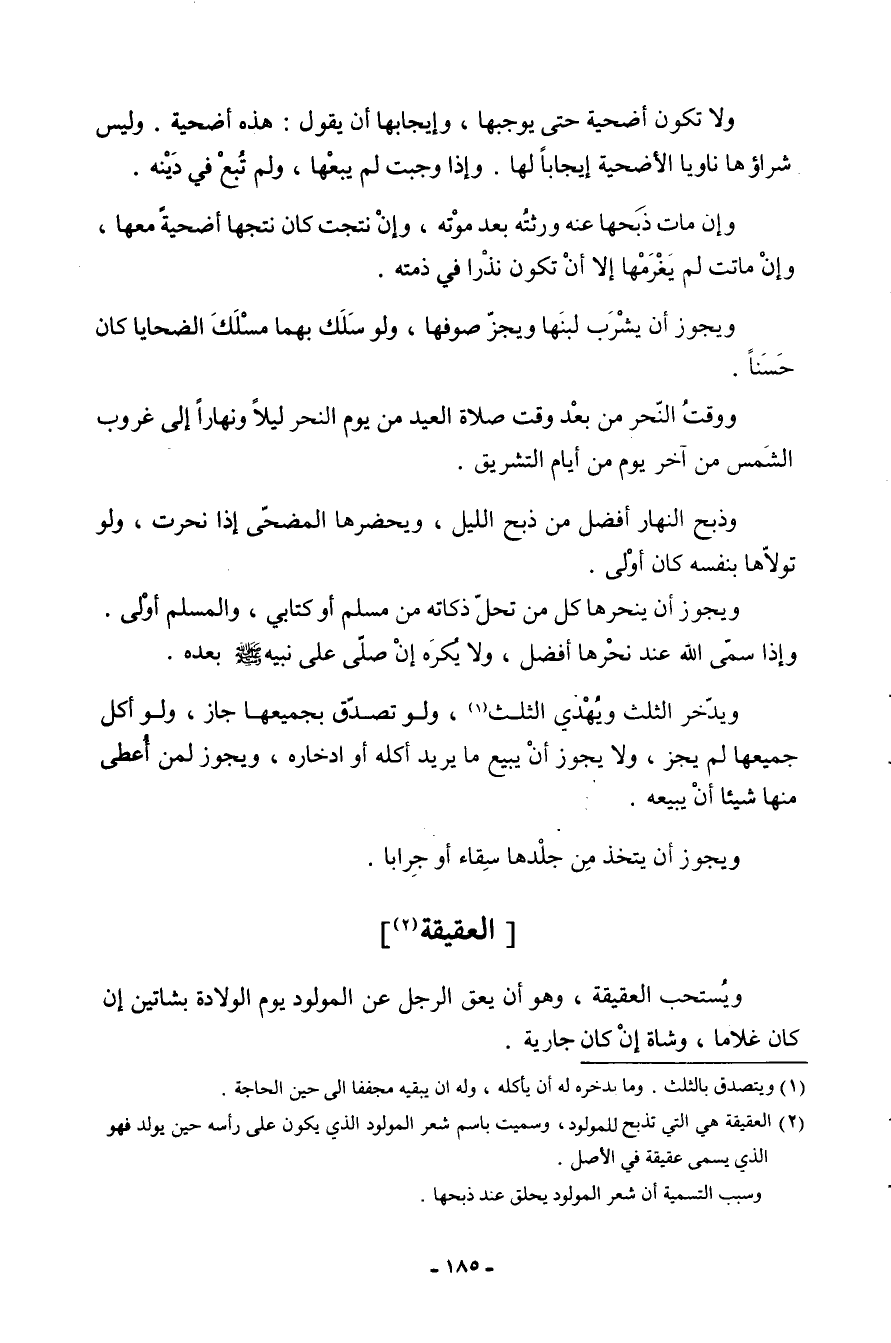 ولا تكون أضحية حتى يوجبها ، وإيجابها أن يقول : هذه أضحية . وليس
شراؤها ناويا الأضحية إيجاباً لها . وإذا وجبت لم يبعْها ، ولم تُبعْ في دَيْنه .
وإن مات ذَبَحها عنه ورثتُه بعد موْته ، وإنْ نتجت كان نتجها أضحيةً معها ،
وإنْ ماتت لم يَغْرَمْها إلا أنْ تكون نذْرا في ذمته .
ويجوز أن يشْرَب لبنَها ويجزّ صوفها ، ولو سَلَك بهما مسْلَكَ الضحايا كان
حَسَناً .
ووقتُ النّحر من بعْد وقت صلاة العيد من يوم النحر ليلاً ونهاراً إلى غروب
الشَمس من آخر يوم من أيام التشريق .
وذبح النهار أفضل من ذبح الليل ، ويحضرها المضحّى إذا نحرت ، ولو
تولاّها بنفسه كان أوْلى .
ويجوز أن ينحرها كل من تحلّ ذكاته من مسلم أو كتابي ، والمسلم أوْلى .
وإذا سمّى الله عند نحْرها أفضل ، ولا يُكرَه إنْ صلّى على نبيه ﷺ بعده .
ويدّخر الثلث ويُهْدَي الثلث(١) ، ولو تصدّق بجميعها جاز ، ولو أكل
جميعها لم يجز ، ولا يجوز أنْ يبيع ما يريد أكله أو ادخاره ، ويجوز لمن أُعطى
منها شيئا أنْ يبيعه .
ويجوز أن يتخذ مِن جلْدها سقِاء أو جرِابا .
[ العقيقة(٢)]
ويُستحب العقيقة ، وهو أن يعق الرجل عن المولود يوم الولادة بشاتين إن
كان غلاما ، وشاة إنْ كان جارية .
(١) ويتصدق بالثلث . وما يدخره له أن يأكله ، وله ان يبقيه مجففا الى حين الحاجة .
(٢) العقيقة هي التي تذبح للمولود، وسميت باسم شعر المولود الذي يكون على رأسه حين يولد فهو
الذي يسمى عقيقة في الأصل .
وسبب التسمية أن شعر المولود يحلق عند ذبحها .
- ١٨٥ -